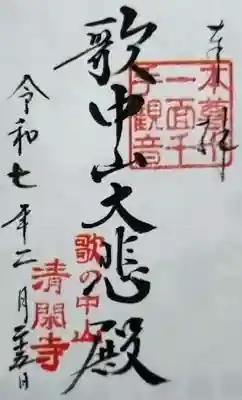 奉拝
本尊十
一面千
手觀音
歌中山大悲殿
歌の中山
清閑寺
令和七年二月二十五日